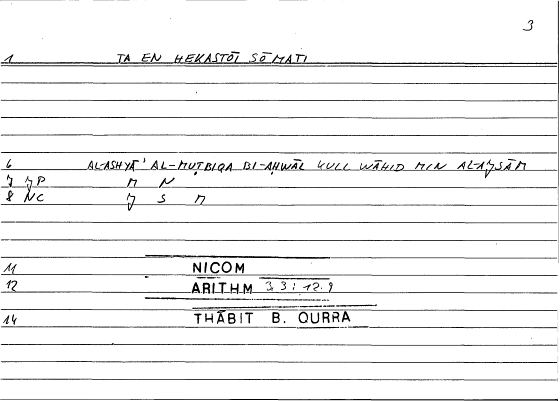 3
1 TA EN HEKASTŌI SŌMATI
6 AL-ASHYĀ' AL-MUṬBIQA BI-AḤWĀL KULL WĀḤID MIN AL-AJSĀM
7 JP M N
8 NC J S M
11 NICOM
12 ARITHM 3.3; 12.9
14 THĀBIT B. QURRA